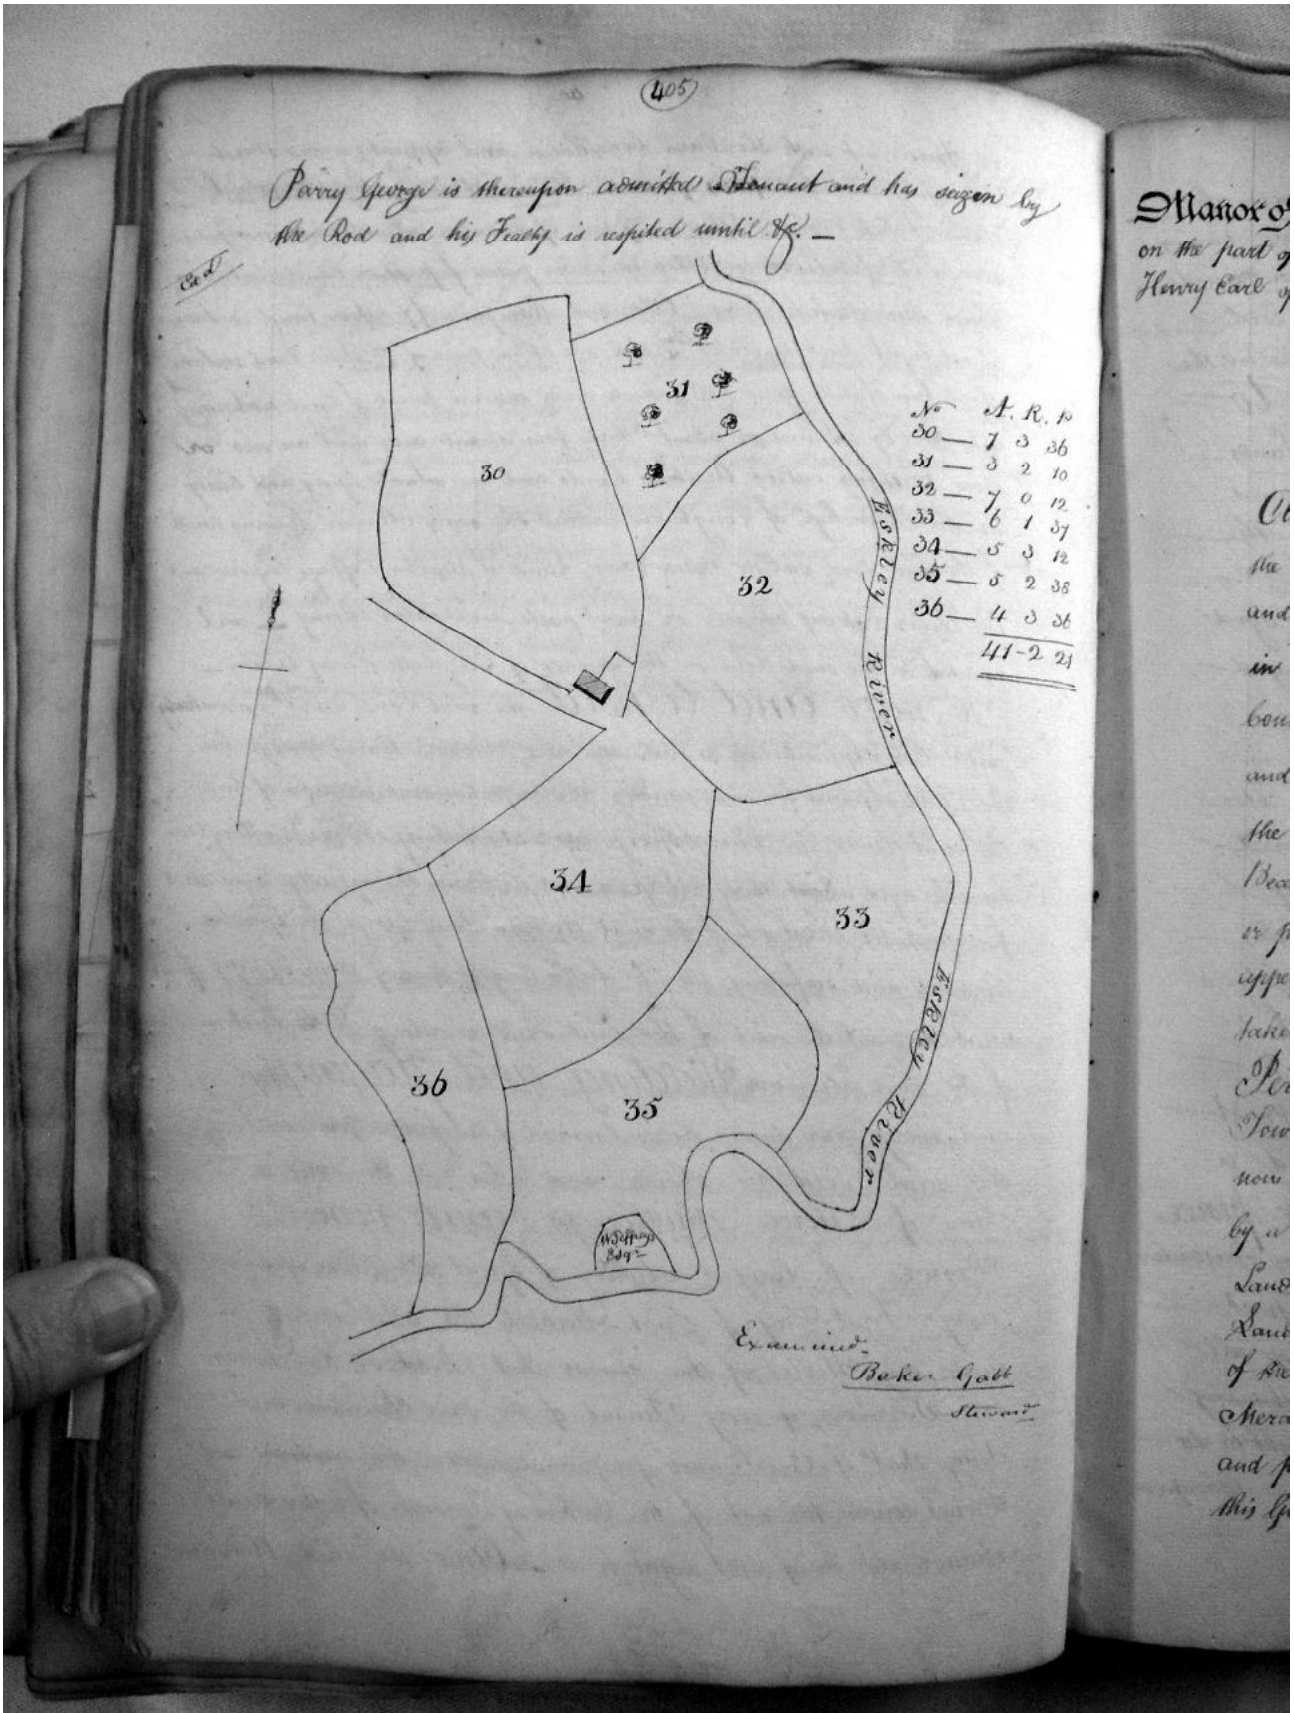 405
Parry George is thereupon admitted Tenant and has seizen by
the Rod and his Fealty is respited until &c. —
Exd
30
31
32
33
34
35
36
Eskley River
Eskley River
No A. R. P
30 — 7 3 36
31 — 3 2 10
32 — 7 0 12
33 — 6 1 37
34 — 5 3 12
35 — 5 2 38
36 — 4 3 36
41-2 21
Esqre
Examined.
Baker Gabb
Steward
Manor of
on the part of
Henry Earl of
the
and
in
and
the
or
take
now
by a
Land
of the
and
this